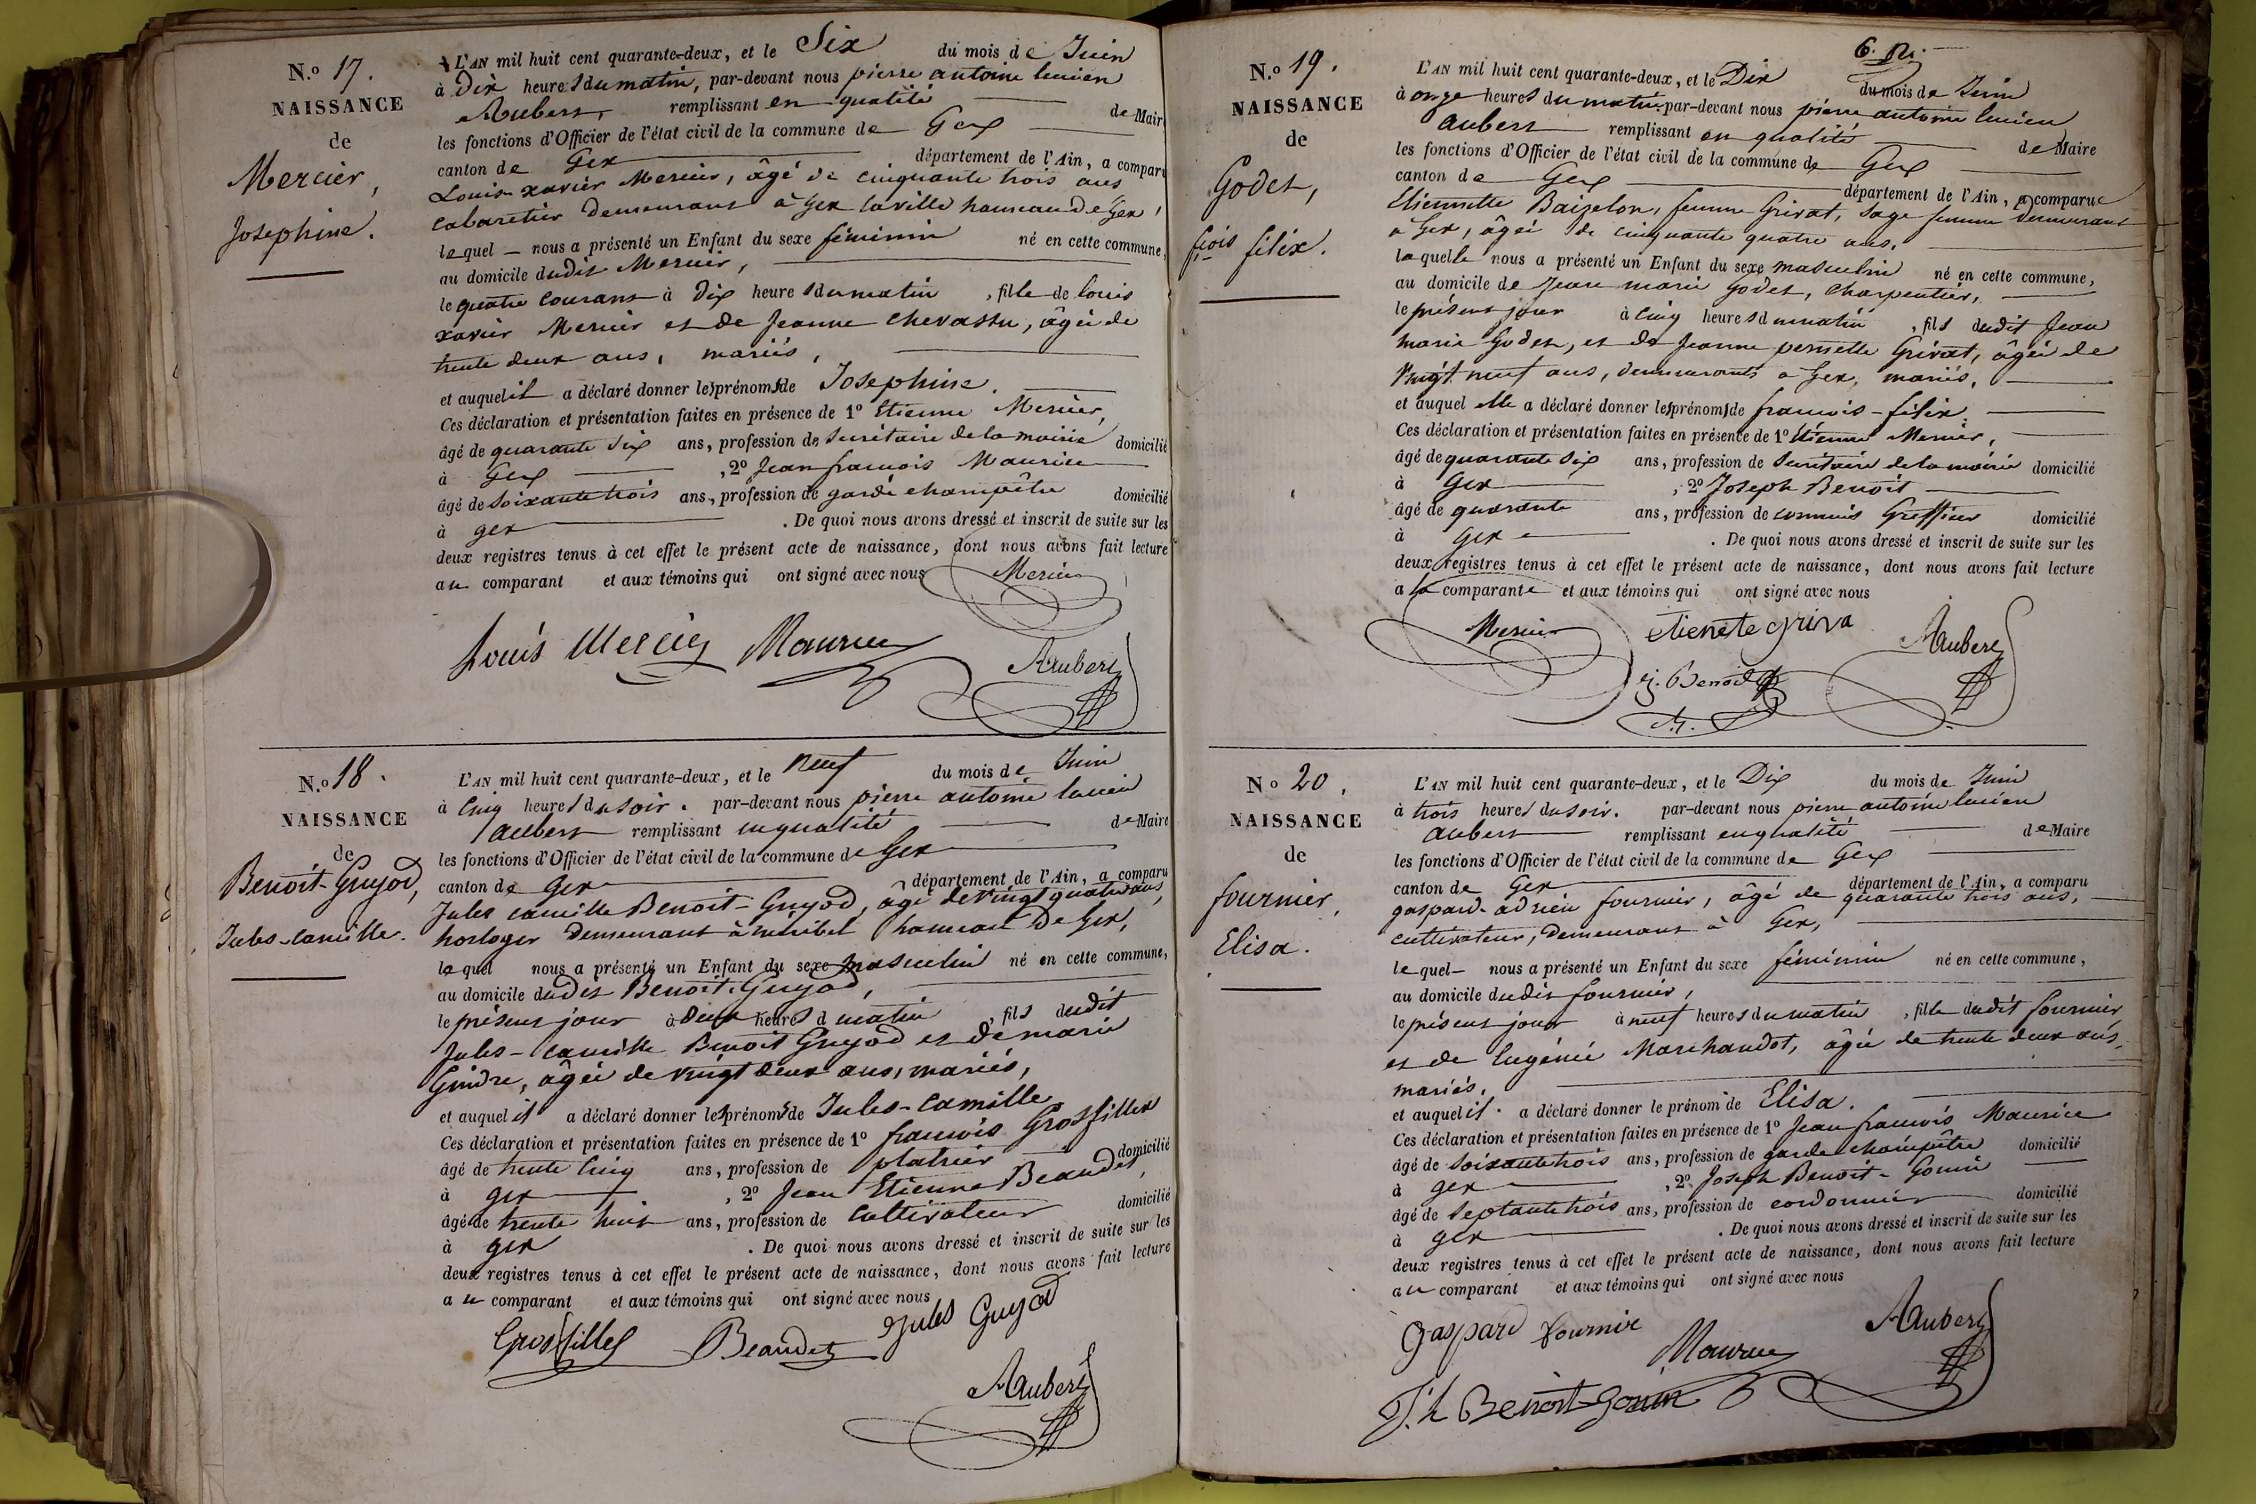 N.o 17.
NAISSANCE
de
Mercier,
Josephine.
L'AN mil huit cent quarante-deux, et le Six du mois de Juin
à Dix heures du matin, par-devant nous pierre antoine lucien
Aubert, remplissant en qualité de Maire
les fonctions d'Officier de l'état civil de la commune de Gex
canton de Gex département de l'Ain, a comparu
Louis xavier Mercier, âgé de cinquante trois ans
cabaretier demeurant à Gex la ville hameau de Gex,
lequel nous a présenté un Enfant du sexe féminin né en cette commune,
au domicile dudit Mercier,
le quatre courant à Dix heures du matin, fille de louis
xavier Mercier et de Jeanne Chevassu, âgée de
trente deux ans, mariés,
et auquel il a déclaré donner les prénoms de Josephine.
Ces déclaration et présentation faites en présence de 1º Etienne Mercier,
âgé de quarante six ans, profession de Secrétaire de la mairie domicilié
à Gex, 2º Jean françois Maurice
âgé de Soixante trois ans, profession de garde champêtre domicilié
à gex. De quoi nous avons dressé et inscrit de suite sur les
deux registres tenus à cet effet le présent acte de naissance, dont nous avons fait lecture
au comparant et aux témoins qui ont signé avec nous
Mercier
Louis Mercier Maurice
Aubert
N.o 18.
NAISSANCE
de
Benoit-Guyod,
Jules-camille.
L'AN mil huit cent quarante-deux, et le neuf du mois de Juin
à Cinq heures du soir. par-devant nous pierre antoine lucien
aubert remplissant en qualité de Maire
les fonctions d'Officier de l'état civil de la commune de Gex
canton de Gex département de l'Ain, a comparu
Jules camille Benoit-Guyod, âgé de vingt quatre ans,
horloger demeurant à miribel hameau de Gex,
lequel nous a présenté un Enfant du sexe masculin né en cette commune,
au domicile dudit Benoit-Guyod,
le présent jour à deux heures d matin, fils dudit
Jules-camille Benoit Guyod et de marie
Gindre, âgée de vingt deux ans, mariés,
et auquel il a déclaré donner les prénoms de Jules-Camille
Ces déclaration et présentation faites en présence de 1º françois Grosfillex
âgé de trente cinq ans, profession de platrier domicilié
à gex, 2º Jean Etienne Beaudet,
âgé de trente huit ans, profession de Cultivateur domicilié
à gex. De quoi nous avons dressé et inscrit de suite sur les
deux registres tenus à cet effet le présent acte de naissance, dont nous avons fait lecture
au comparant et aux témoins qui ont signé avec nous
Grosfillex Beaudet Jules Guyod
Aubert
6.
N.o 19.
NAISSANCE
de
Godet,
fçois félix.
L'AN mil huit cent quarante-deux, et le Dix du mois de Juin
à onze heures du matin par-devant nous pierre antoine lucien
aubert remplissant en qualité de Maire
les fonctions d'Officier de l'état civil de la commune de Gex
canton de Gex département de l'Ain, a comparue
Etiennette Baizelon, femme Grivat, Sage femme demeurant
à Gex, âgée de cinquante quatre ans.
laquelle nous a présenté un Enfant du sexe masculin né en cette commune,
au domicile de Jean marie Godet, Charpentier,
le présent jour à cinq heures du matin, fils dudit Jean
marie Godet, et de Jeanne pernette Grivat, âgée de
Vingt neuf ans, demeurants à Gex, mariés,
et auquel elle a déclaré donner les prénoms de françois-félix.
Ces déclaration et présentation faites en présence de 1º Etienne Mercier,
âgé de quarante six ans, profession de Secrétaire de la mairie domicilié
à Gex, 2º Joseph Benoit
âgé de quarante ans, profession de commis Greffier domicilié
à Gex. De quoi nous avons dressé et inscrit de suite sur les
deux registres tenus à cet effet le présent acte de naissance, dont nous avons fait lecture
à la comparante et aux témoins qui ont signé avec nous
Mercier etienete griva Aubert
j. Benoit
No 20.
NAISSANCE
de
fournier,
Elisa.
L'AN mil huit cent quarante-deux, et le Dix du mois de Juin
à trois heures du soir. par-devant nous pierre antoine lucien
aubert remplissant en qualité de Maire
les fonctions d'Officier de l'état civil de la commune de Gex
canton de Gex département de l'Ain, a comparu
gaspard-adrien fournier, âgé de quarante trois ans,
cultivateur, demeurant à Gex,
lequel nous a présenté un Enfant du sexe féminin né en cette commune,
au domicile dudit fournier,
le présent jour à neuf heures du matin, fille dudit fournier
et de Eugénie Marchandot, âgée de trente deux ans,
mariés.
et auquel il a déclaré donner le prénom de Elisa.
Ces déclaration et présentation faites en présence de 1º Jean françois Maurice
âgé de soixante trois ans, profession de garde champêtre domicilié
à gex, 2º Joseph Benoit-Gonin
âgé de Septante trois ans, profession de cordonnier domicilié
à gex. De quoi nous avons dressé et inscrit de suite sur les
deux registres tenus à cet effet le présent acte de naissance, dont nous avons fait lecture
au comparant et aux témoins qui ont signé avec nous
gaspard fournier Maurice Aubert
J.h Benoit-Gonin